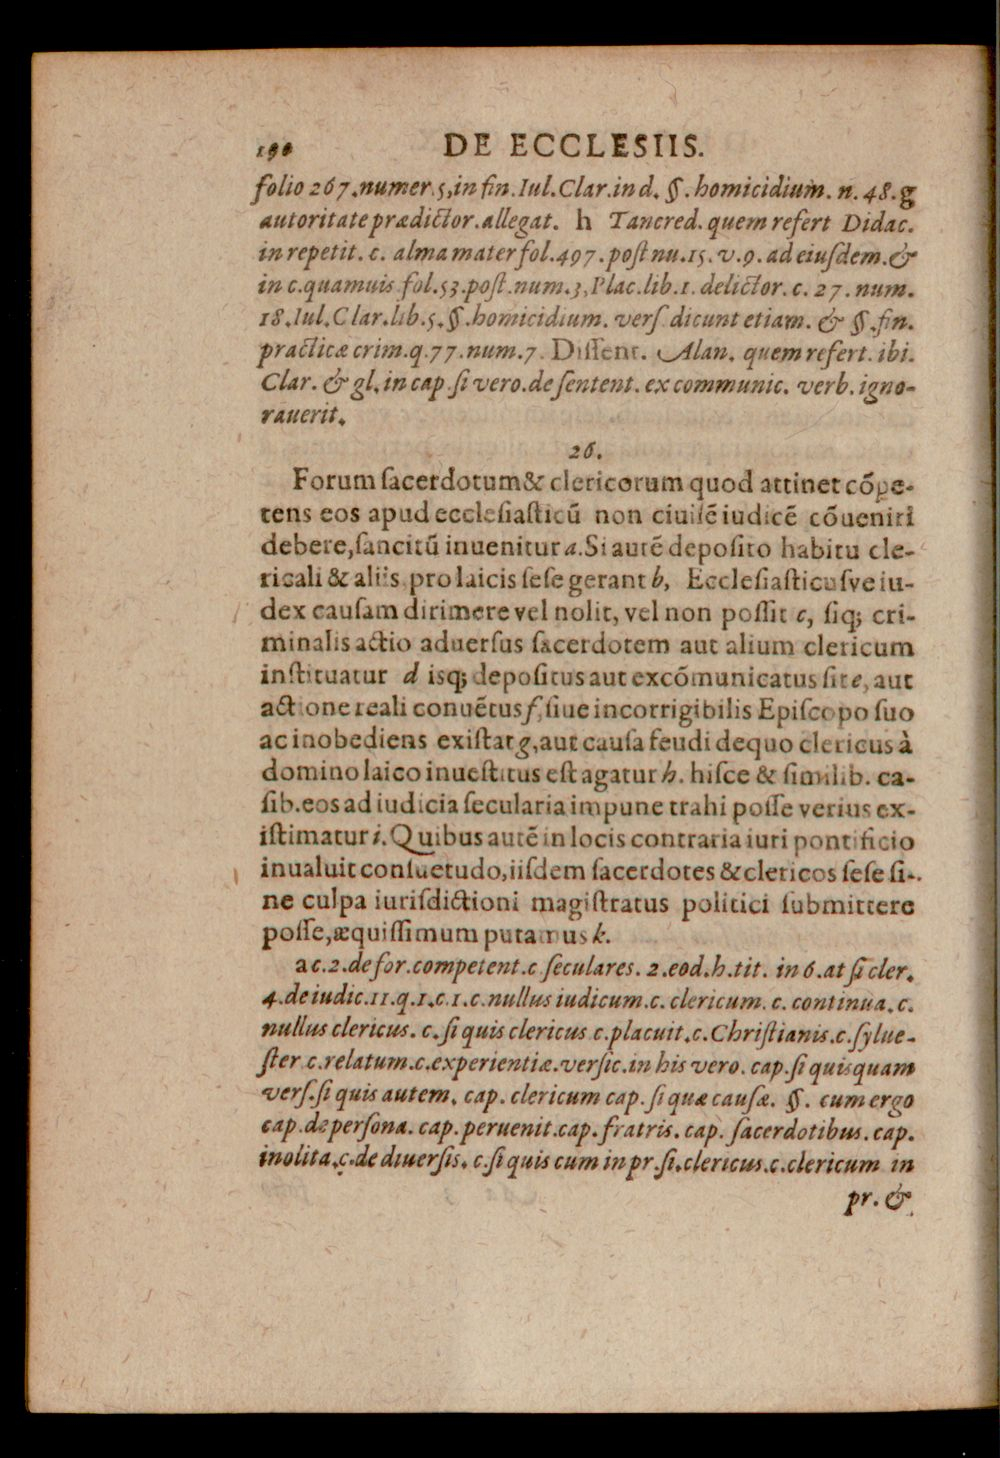 190 DE ECCLESIIS.
folio 267.numer 5,in fin.Iul.Clar.in d. §. homicidium. n. 48.g
autoritate prædictor.allegat. h Tancred. quem refert Didac.
in repetit. c. alma mater fol.497. post nu.15. v.9. ad eiusdem.&
in c.quamuis fol.53.post.num.3,Plac.lib.1. delictor. c. 27. num.
18.Iul.Clar.lib.5.§.homicidium. vers dicunt etiam. & §.fin.
practicæ crim.q.77.num.7. Dissent. Alan. quem refert. ibi.
Clar. & gl.in cap.si vero.de sentent. excommunic. verb. igno-
rauerit.
26.
Forum sacerdotum& clericorum quod attinet cõpe-
tens eos apud ecclesiasticũ non ciuilẽ iudicẽ cõueniri
debere,sancitũ inuenitur a.Si autẽ deposito habitu cle-
ricali & aliis pro laicis sese gerant b, Ecclesiasticusve iu-
dex causam dirimere vel nolit, vel non possit c, siq; cri-
minalis actio aduersus sacerdotem aut alium clericum
instituatur d isq; depositus aut excõmunicatus sit e, aut
actione reali conuẽtus f, siue incorrigibilis Episcopo suo
ac inobediens existat g,aut causa feudi de quo clericus à
domino laico inuestitus est agatur h. hisce & similib. ca-
sib.eos ad iudicia secularia impune trahi posse verius ex-
istimatur i.Quibus autẽ in locis contraria iuri pontificio
inualuit consuetudo,iisdem sacerdotes & clericos sese si-
ne culpa iurisdictioni magistratus politici submittere
posse,æquissimum putamus k.
a c.2.de for.competent.c seculares. 2.eod.h.tit. in 6.at si cler.
4.de iudic.11.q.1.c.1.c.nullus iudicum.c. clericum. c. continua.c.
nullus clericus. c.si quis clericus c.placuit.c.Christianis.c.sylue-
ster c.relatum.c.experientiæ.versic.in his vero. cap.si quisquam
vers.si quis autem. cap. clericum cap.si quæ causæ. §. cum ergo
cap.de persona. cap.peruenit.cap.fratris. cap. sacerdotibus. cap.
inolita.c.de diuersis. c.si quis cum in pr.si.clericus.c.clericum in
pr. &